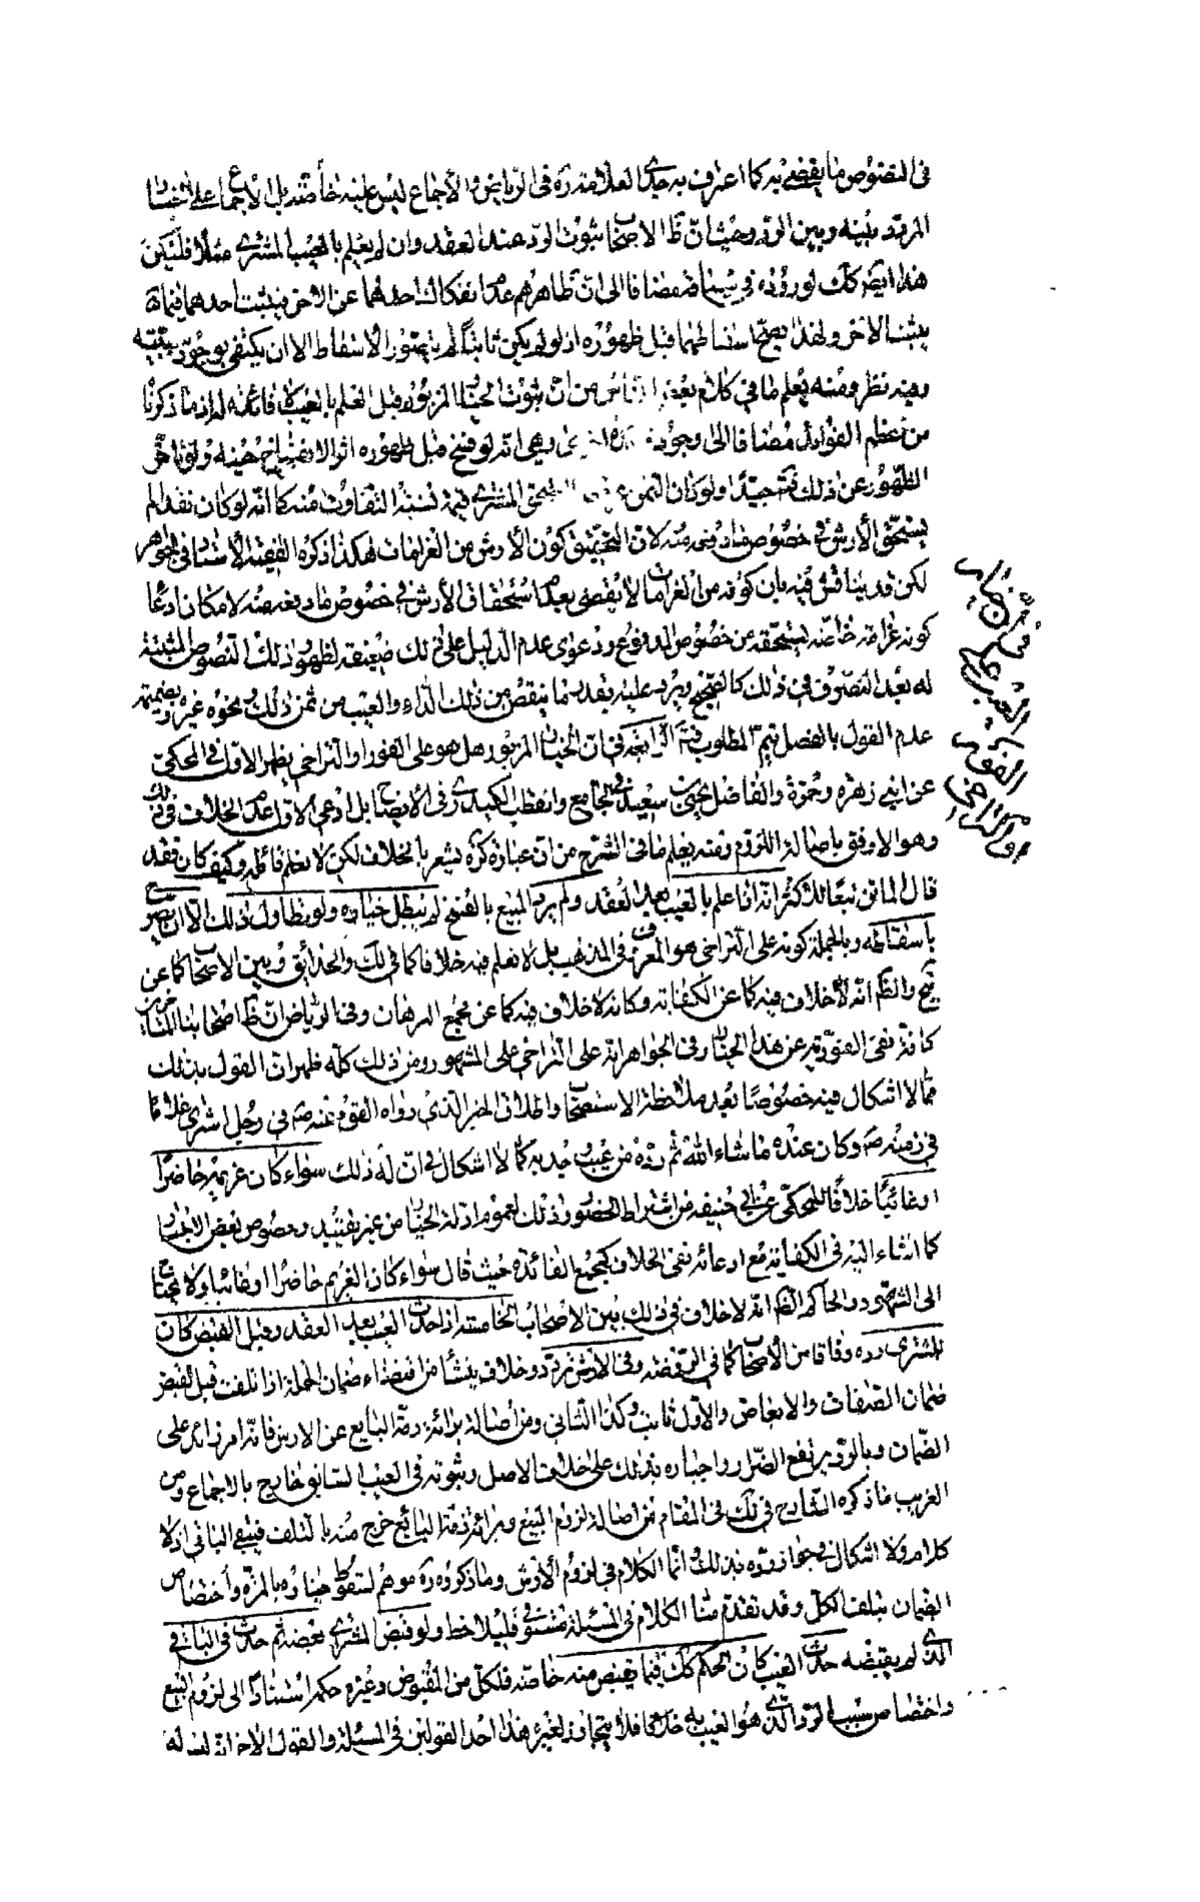 فى النصوص ما يقضى به كما اعترف به جدى العلامة قده فى الرياض والاجماع ليس عليه خاصة بل الاجماع على
المردد بينه وبين الرد وحيث ان ظ الاصحاب ثبوت الرد عند العقد وان لم يعلم بالعيب المشترى مثلا فليكن
هذا ايضا كك لوروده فى مضافا الى ان ظاهرهم عدم انفكاك احدهما عن الاخر فيثبت احدهما فيما
يثبت الاخر ولهذا يصح اسقاطهما قبل ظهوره اذ لو لم يكن ثابتا لم يتصور الاسقاط الا ان يكتفى بوجود سببه
وفيه نظر ومنه يعلم ما فى كلام بعض الناس من ان ثبوت الخيار المزبور قبل العلم بالعيب لا فائدة له اذ ما ذكرنا
من اعظم الفوائد مضافا الى وجود وهى انه لو فسخ قبل ظهوره اثر الانفساخ حينه ولو تاخر
الظهور عن ذلك فتجيدا ولو كان الثمن المشترى قيمة نسبة التفاوت منه كما انه لو كان نقدا لم
يستحق الأرش فى خصوص ما دفعه منه لان التحقيق كون الأرش من الغرامات هكذا ذكره الفقيه الاستاد فى الجواهر
لكن قد يناقش فيه بان كونه من الغرامات لا يقضى بعدم استحقاق الأرش فى خصوص ما دفعه منه لامكان ادعاء
كونه غرامة خاصة يستحقه عن خصوص المدفوع ودعوى عدم الدليل على ذلك ضعيفة لظهور ذلك النصوص المثبتة
له بعد التصرف فى ذلك كالصحيح ويرد عليه بقدر ما ينقص من ذلك الداء والعيب من ثمن ذلك ونحوه غيره وبضميمة
عدم القول بالفصل يتم المطلوب فت الرابعة فى ان الخيار المزبور هل هو على الفور او التراخى يظهر الاول فى المحكى
عن ابنى زهرة وحمزة والفاضل يحيى بن سعيد فى الجامع والقطب الكيدرى وفى الايضاح بل ادعى الاول عدم الخلاف فى ذلك
وهو الاوفق باصالة اللزوم وفيه يعلم ما فى الشرح من ان عبارة كره يشعر بالخلاف لكن لا نعلم قائله وكيف كان فقد
قال الماتن تبعا للاكثر انه اذا علم بالعيب بعد العقد ولم يرد المبيع بالفسخ لم يبطل خياره ولو تطاول ذلك الا ان يصرح
باسقاطه وبالجملة كونه على التراخى هو المعروف فى المذهب بل لا نعلم فيه خلافا كما فى لك والحدائق وبين الاصحاب كما عن
والظ انه لا خلاف فيه كما عن الكفاية وكانه لا خلاف فيه كما عن مجمع البرهان وفى الرياض ان ظ اصحابنا المتاخرين
كافة نفى الفورية عن هذا الخيار وفى الجواهر انه على التراخى على المشهور ومن ذلك كله ظهر ان القول بذلك
مما لا اشكال فيه خصوصا بعد ملاحظة الاستصحاب واطلاق الخبر الذى رواه القوم عنه ص فى رجل اشترى غلاما
فى زمنه ص وكان عنده ما شاء الله ثم رده من عيب وجد به كما لا اشكال فى ان له ذلك سواء كان غريمه حاضرا
او غائبا خلافا للمحكى عن ابى حنيفه من اشتراط الحضور وذلك لعموم ادلة الخيار من غير تقييد وخصوص بعض الاخبار
كما اشار اليه فى الكفاية مع ادعائه نفى الخلاف كمجمع الفائدة حيث قال سواء كان الغريم حاضرا او غائبا ولا يحتاج
الى الشهود والحاكم الظ انه لا خلاف فى ذلك بين الاصحاب الخامسة اذا حدث العيب بعد العقد وقبل القبض كان
للمشترى رده وفاقا من الأصحاب كما فى الروضه وفى الارش تردد وخلاف ينشأ من اقتضاء ضمان الجملة اذا تلفت قبل القبض
ضمان الصفات والابعاض والاول ثابت وكذا الثانى ومن اصالة برائة ذمة البايع عن الارش فانه امر زائد على
الضمان وبالرد يرتفع الضرر واجباره بذلك على خلاف الاصل وثبوته فى العيب السابق خارج بالاجماع ومن
الغريب ما ذكره الشارح فى لك فى المقام من اصالة لزوم البيع وبرائة ذمة البائع خرج منه بالتلف فيبقى الباقى اذ لا
كلام ولا اشكال فى جواز رده بذلك انما الكلام فى لزوم الأرش وما ذكروه ره موهم لسقوط خياره بالمرة واختصاص
الضمان بتلف الكل وقد تقدم منا الكلام فى المسئلة مستوفى فليلاحظ ولو قبض المشترى بعضه ثم حدث فى الباقى
الذى لم يقبضه حدث العيب كان الحكم كك فيما يقبض منه خاصة فلكل من المقبوض وغيره حكمه استنادا الى لزوم البيع
واختصاص سبب الرد الذى هو العيب به خلافا فلا يتجاوز لغيره هذا احد القولين فى المسئلة والقول الاخر انه ليس له
فى ان خيار
العيب على
الفور
او التراخى